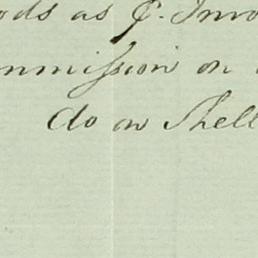 ods as ⅌. Invo
mmission on
do on Shell